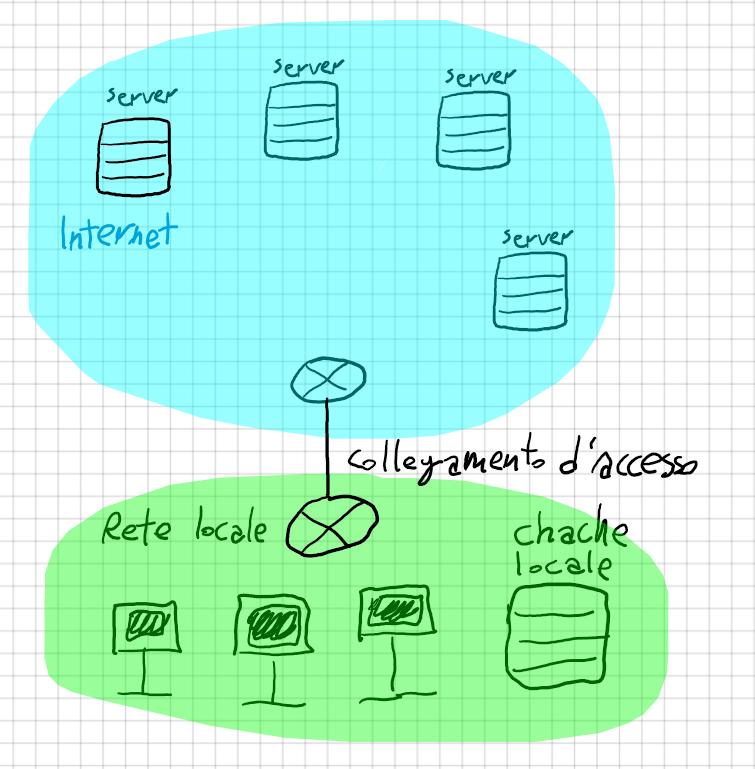 server
server
server
Internet
server
collegamento d'accesso
Rete locale
chache
locale